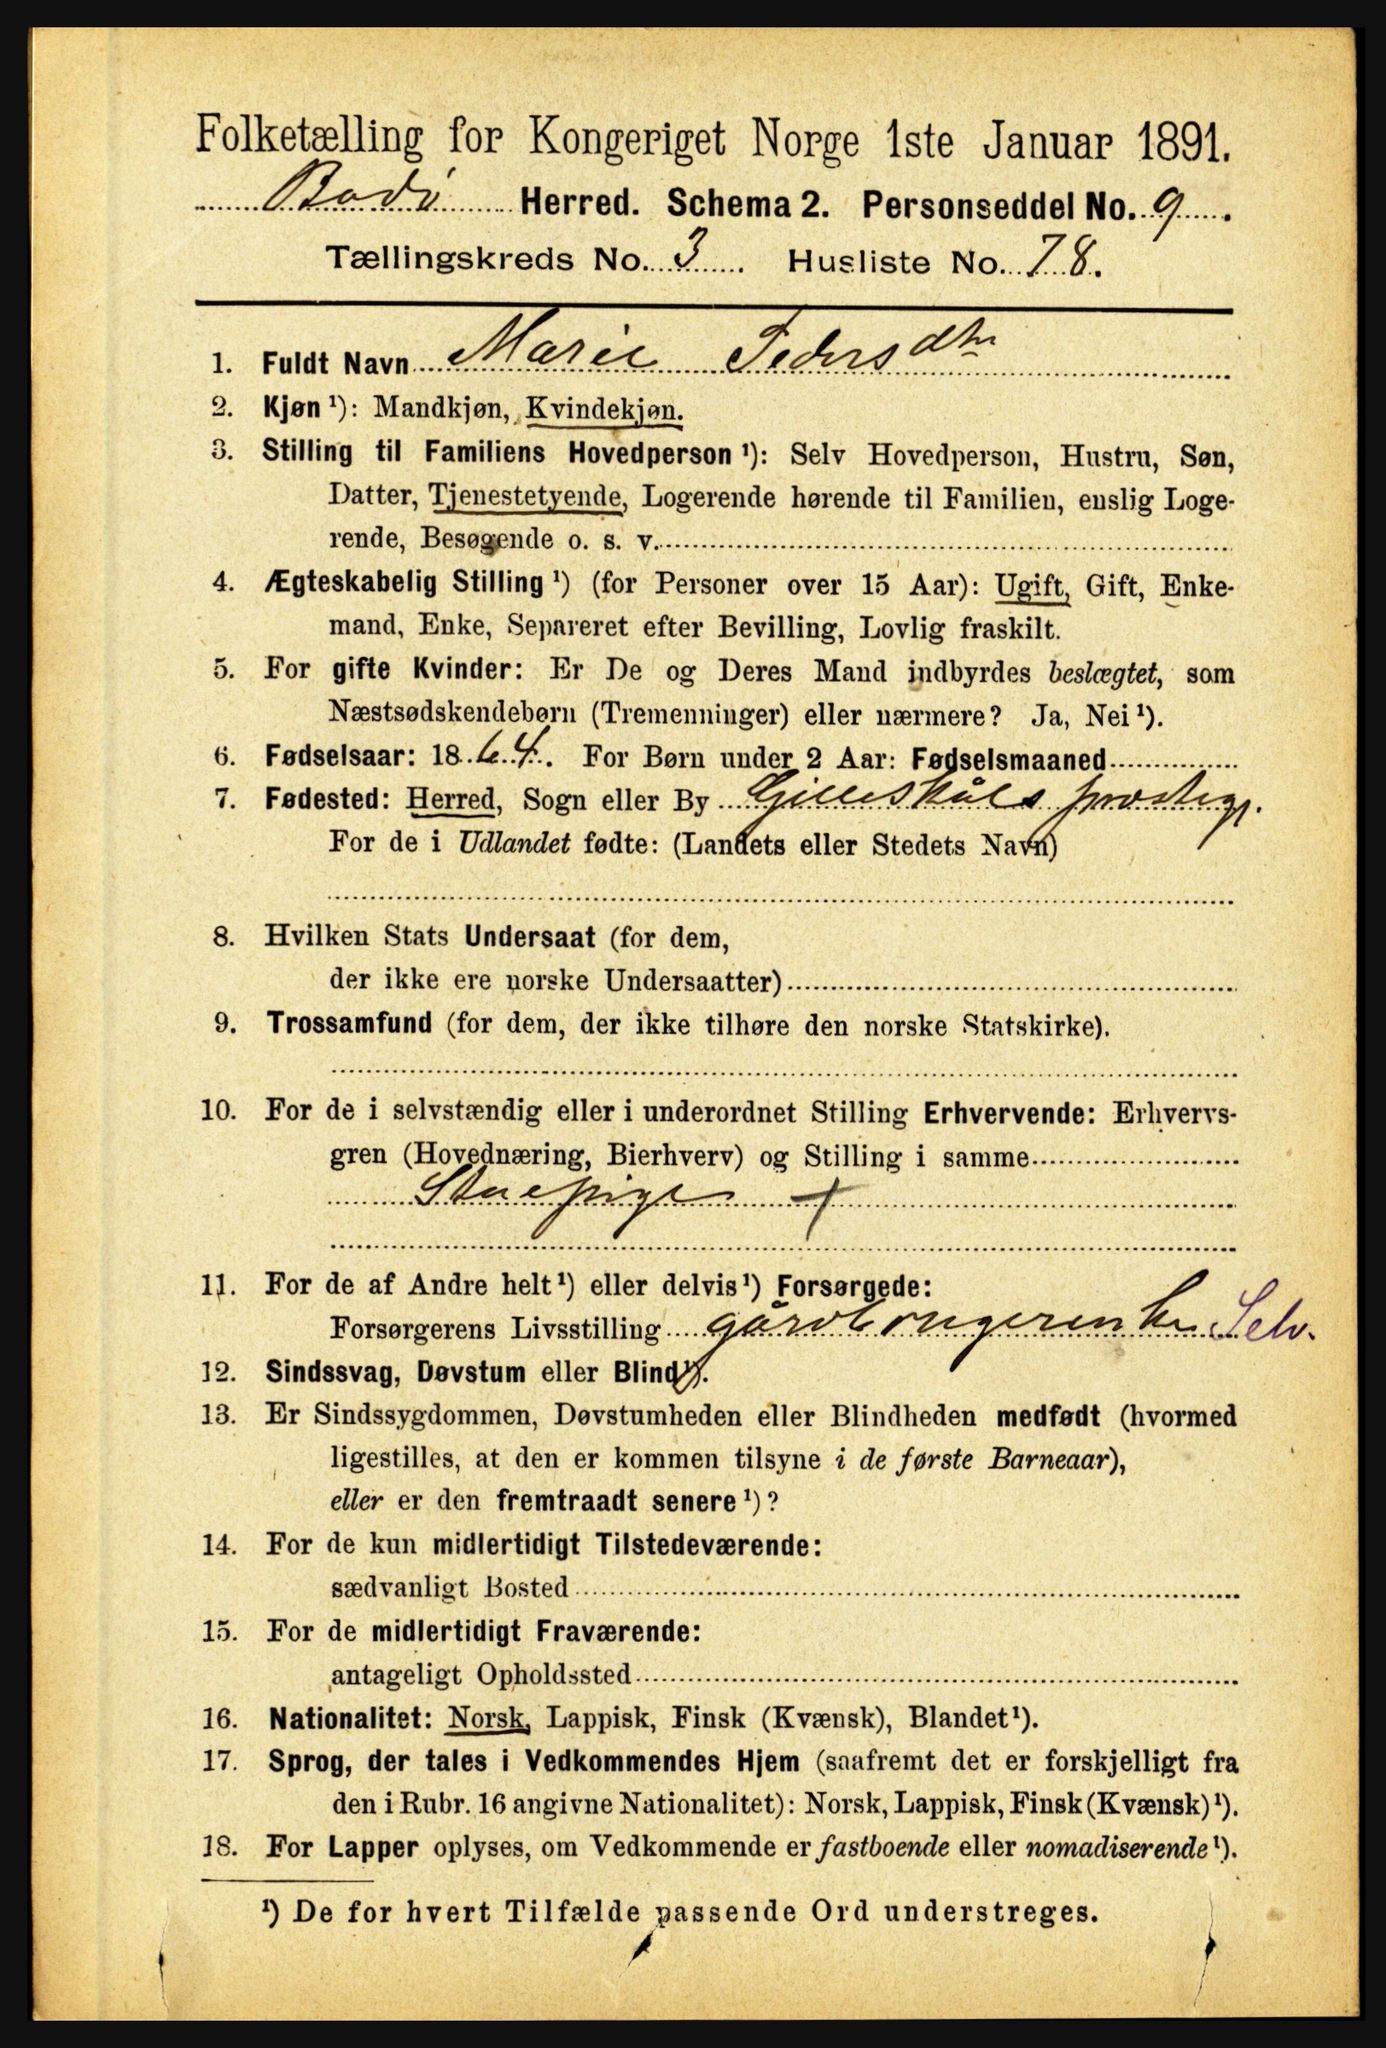 Folketælling for Kongeriget Norge 1ste Januar 1891.
Bodø Herred. Schema 2. Personseddel No. 9.
Tællingskreds No. 3. Husliste No. 78.
1. Fuldt Navn Marie Pedersdtr
2. Kjøn ¹): Mandkjøn, Kvindekjøn.
3. Stilling til Familiens Hovedperson ¹): Selv Hovedperson, Hustru, Søn,
Datter, Tjenestetyende, Logerende hørende til Familien, enslig Loge-
rende, Besøgende o. s. v.
4. Ægteskabelig Stilling ¹) (for Personer over 15 Aar): Ugift, Gift, Enke-
mand, Enke, Separeret efter Bevilling, Lovlig fraskilt.
5. For gifte Kvinder: Er De og Deres Mand indbyrdes beslægtet, som
Næstsødskendebørn (Tremenninger) eller nærmere? Ja, Nei ¹).
6. Fødselsaar: 1864. For Børn under 2 Aar: Fødselsmaaned
7. Fødested: Herred, Sogn eller By Gilleskåls præstegj.
For de i Udlandet fødte: (Landets eller Stedets Navn)
8. Hvilken Stats Undersaat (for dem,
der ikke ere norske Undersaatter)
9. Trossamfund (for dem, der ikke tilhøre den norske Statskirke).
10. For de i selvstændig eller i underordnet Stilling Erhvervende: Erhvervs-
gren (Hovednæring, Bierhverv) og Stilling i samme
Stuepige +
11. For de af Andre helt ¹) eller delvis ¹) Forsørgede:
Forsørgerens Livsstilling Selv.
12. Sindssvag, Døvstum eller Blind ¹).
13. Er Sindssygdommen, Døvstumheden eller Blindheden medfødt (hvormed
ligestilles, at den er kommen tilsyne i de første Barneaar),
eller er den fremtraadt senere ¹)?
14. For de kun midlertidigt Tilstedeværende:
sædvanligt Bosted
15. For de midlertidigt Fraværende:
antageligt Opholdssted
16. Nationalitet: Norsk, Lappisk, Finsk (Kvænsk), Blandet ¹).
17. Sprog, der tales i Vedkommendes Hjem (saafremt det er forskjelligt fra
den i Rubr. 16 angivne Nationalitet): Norsk, Lappisk, Finsk (Kvænsk) ¹).
18. For Lapper oplyses, om Vedkommende er fastboende eller nomadiserende ¹).
¹) De for hvert Tilfælde passende Ord understreges.